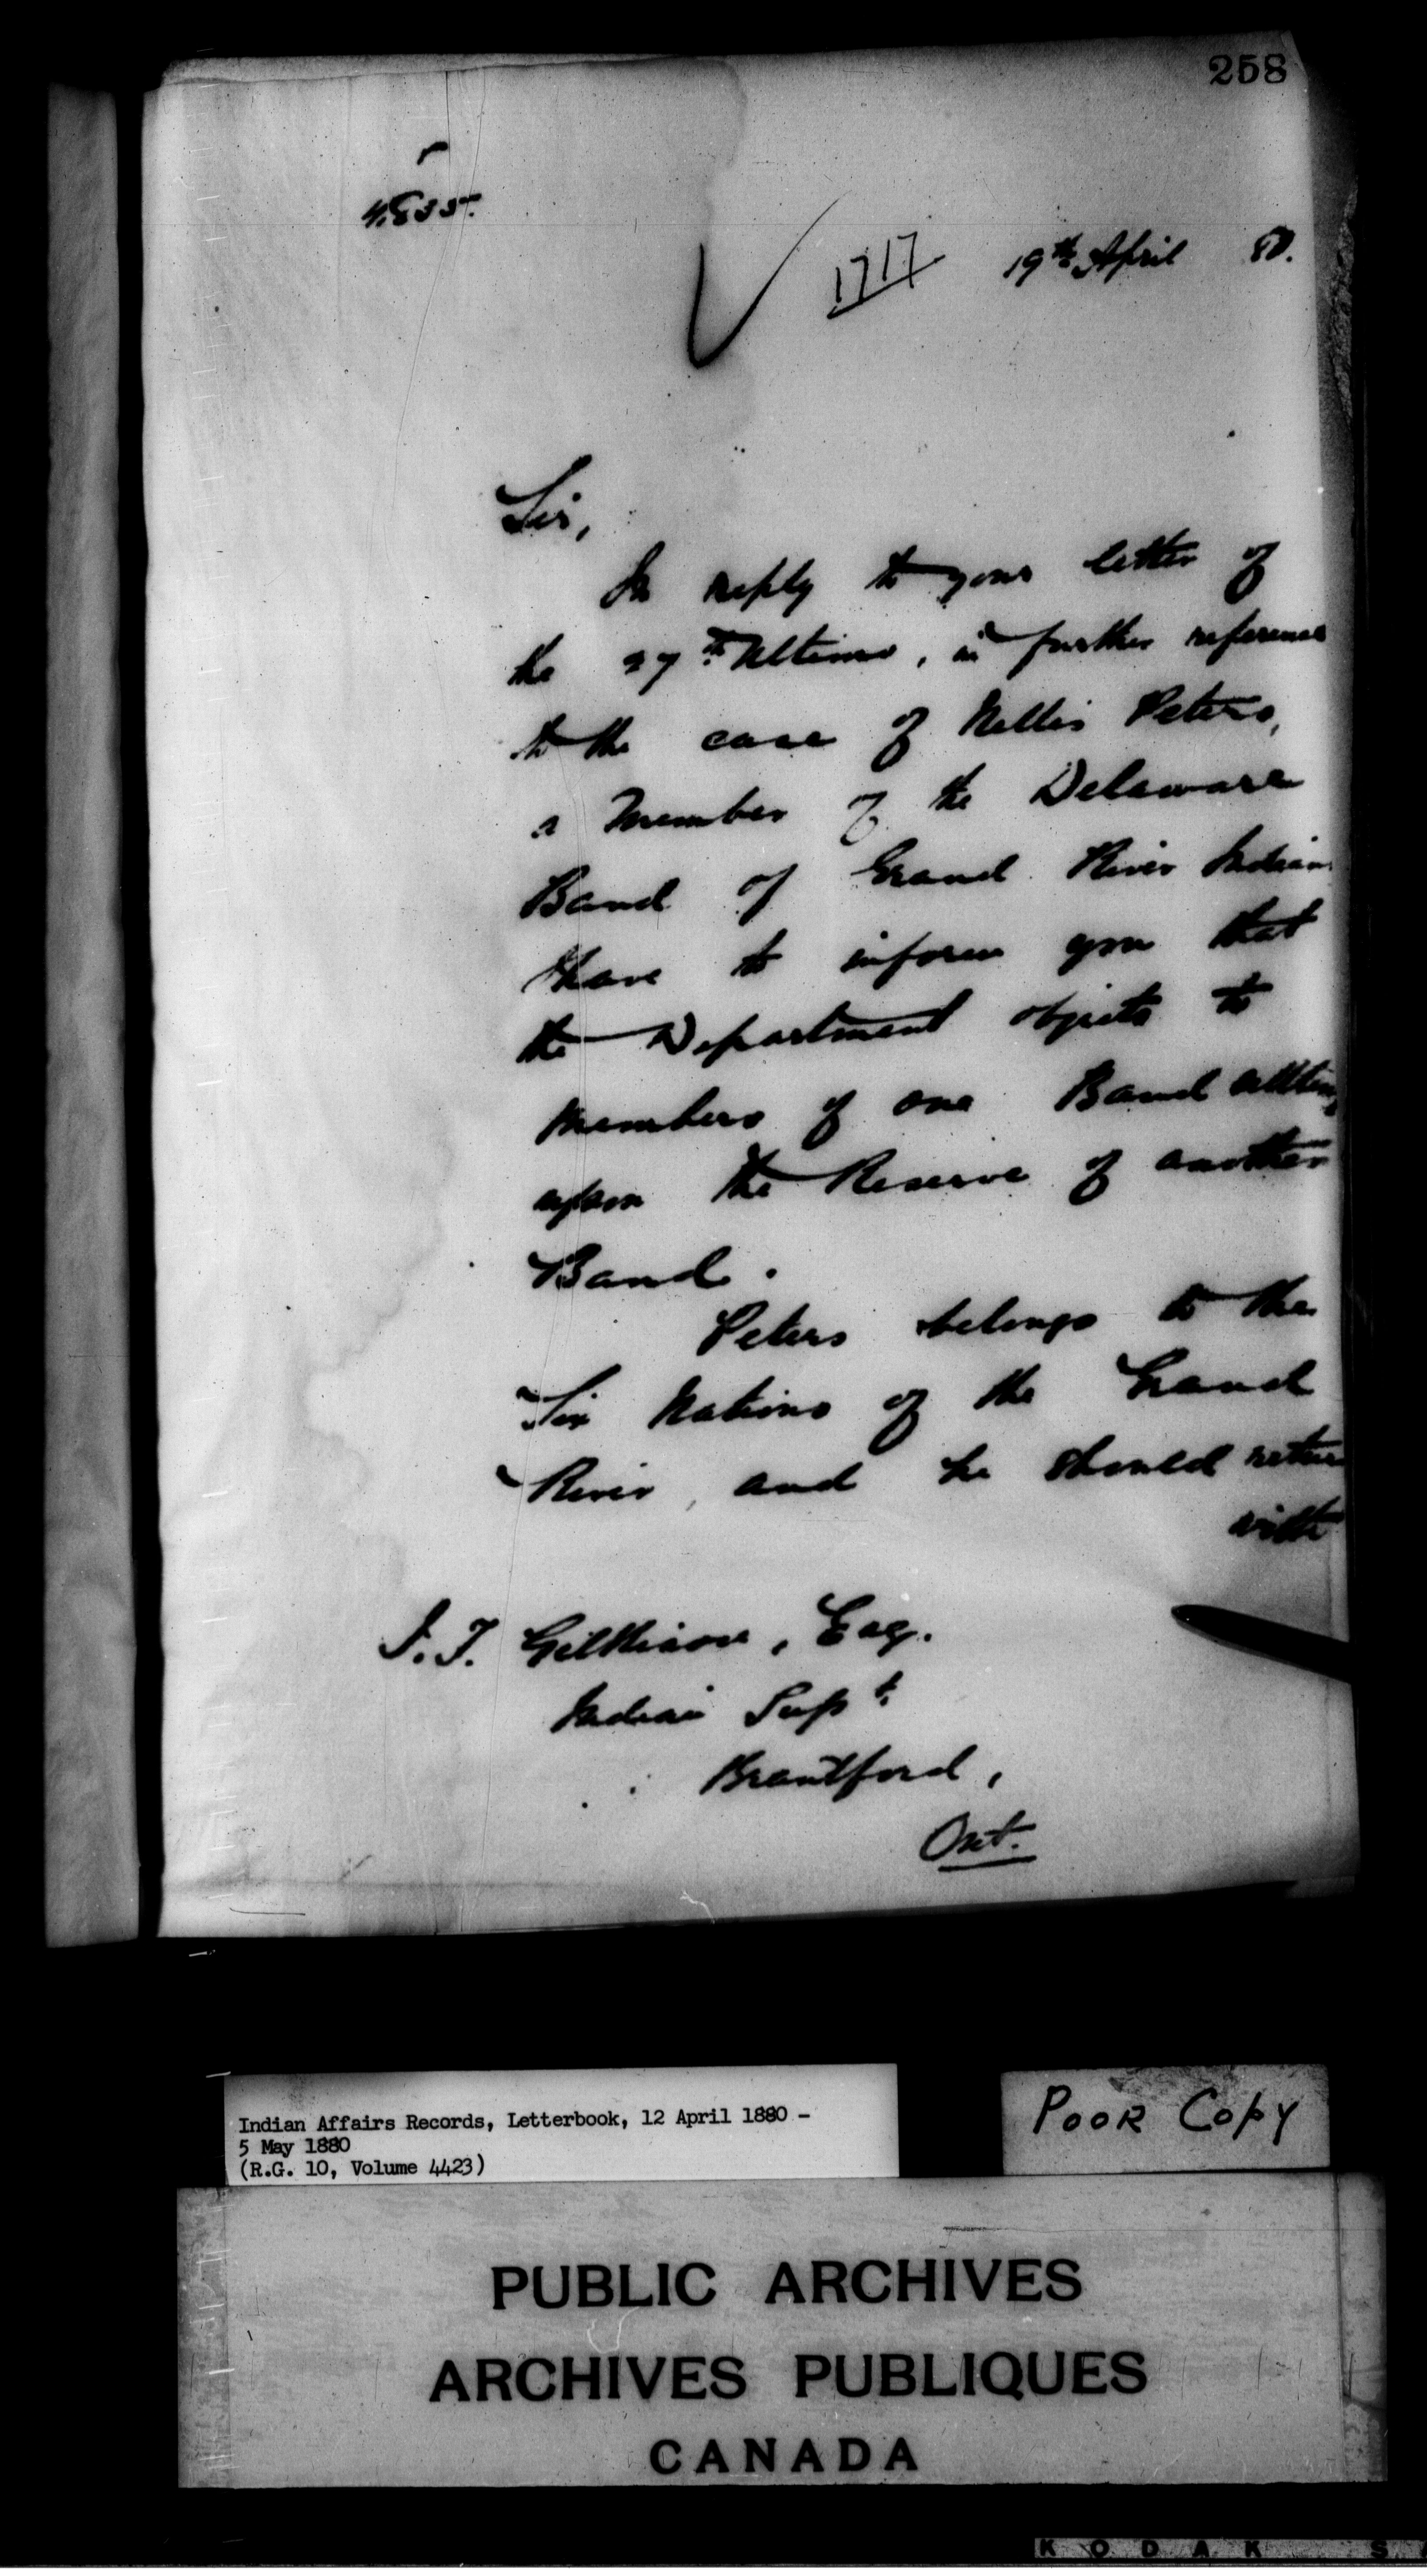 258
4,835.
1717 19th April 80.
Sir,
In reply to your letter of
the 27th Ultimo, in further reference
to the case of Nellis Peters,
a Member of the Delaware
Band of Grand River Indians
I have to inform you that
the Department objects to
members of one Band settling
upon the Reserve of another
Band.
Peters belongs to the
Six Nations of the Grand
River, and he should return
with
J.T. Gilkison, Esq.
Indian Supt.
Brantford,
Ont.
Indian Affairs Records, Letterbook, 12 April 1880 -
5 May 1880
(R.G. 10, Volume 4423)
POOR COPY
PUBLIC ARCHIVES
ARCHIVES PUBLIQUES
CANADA
KODAK S